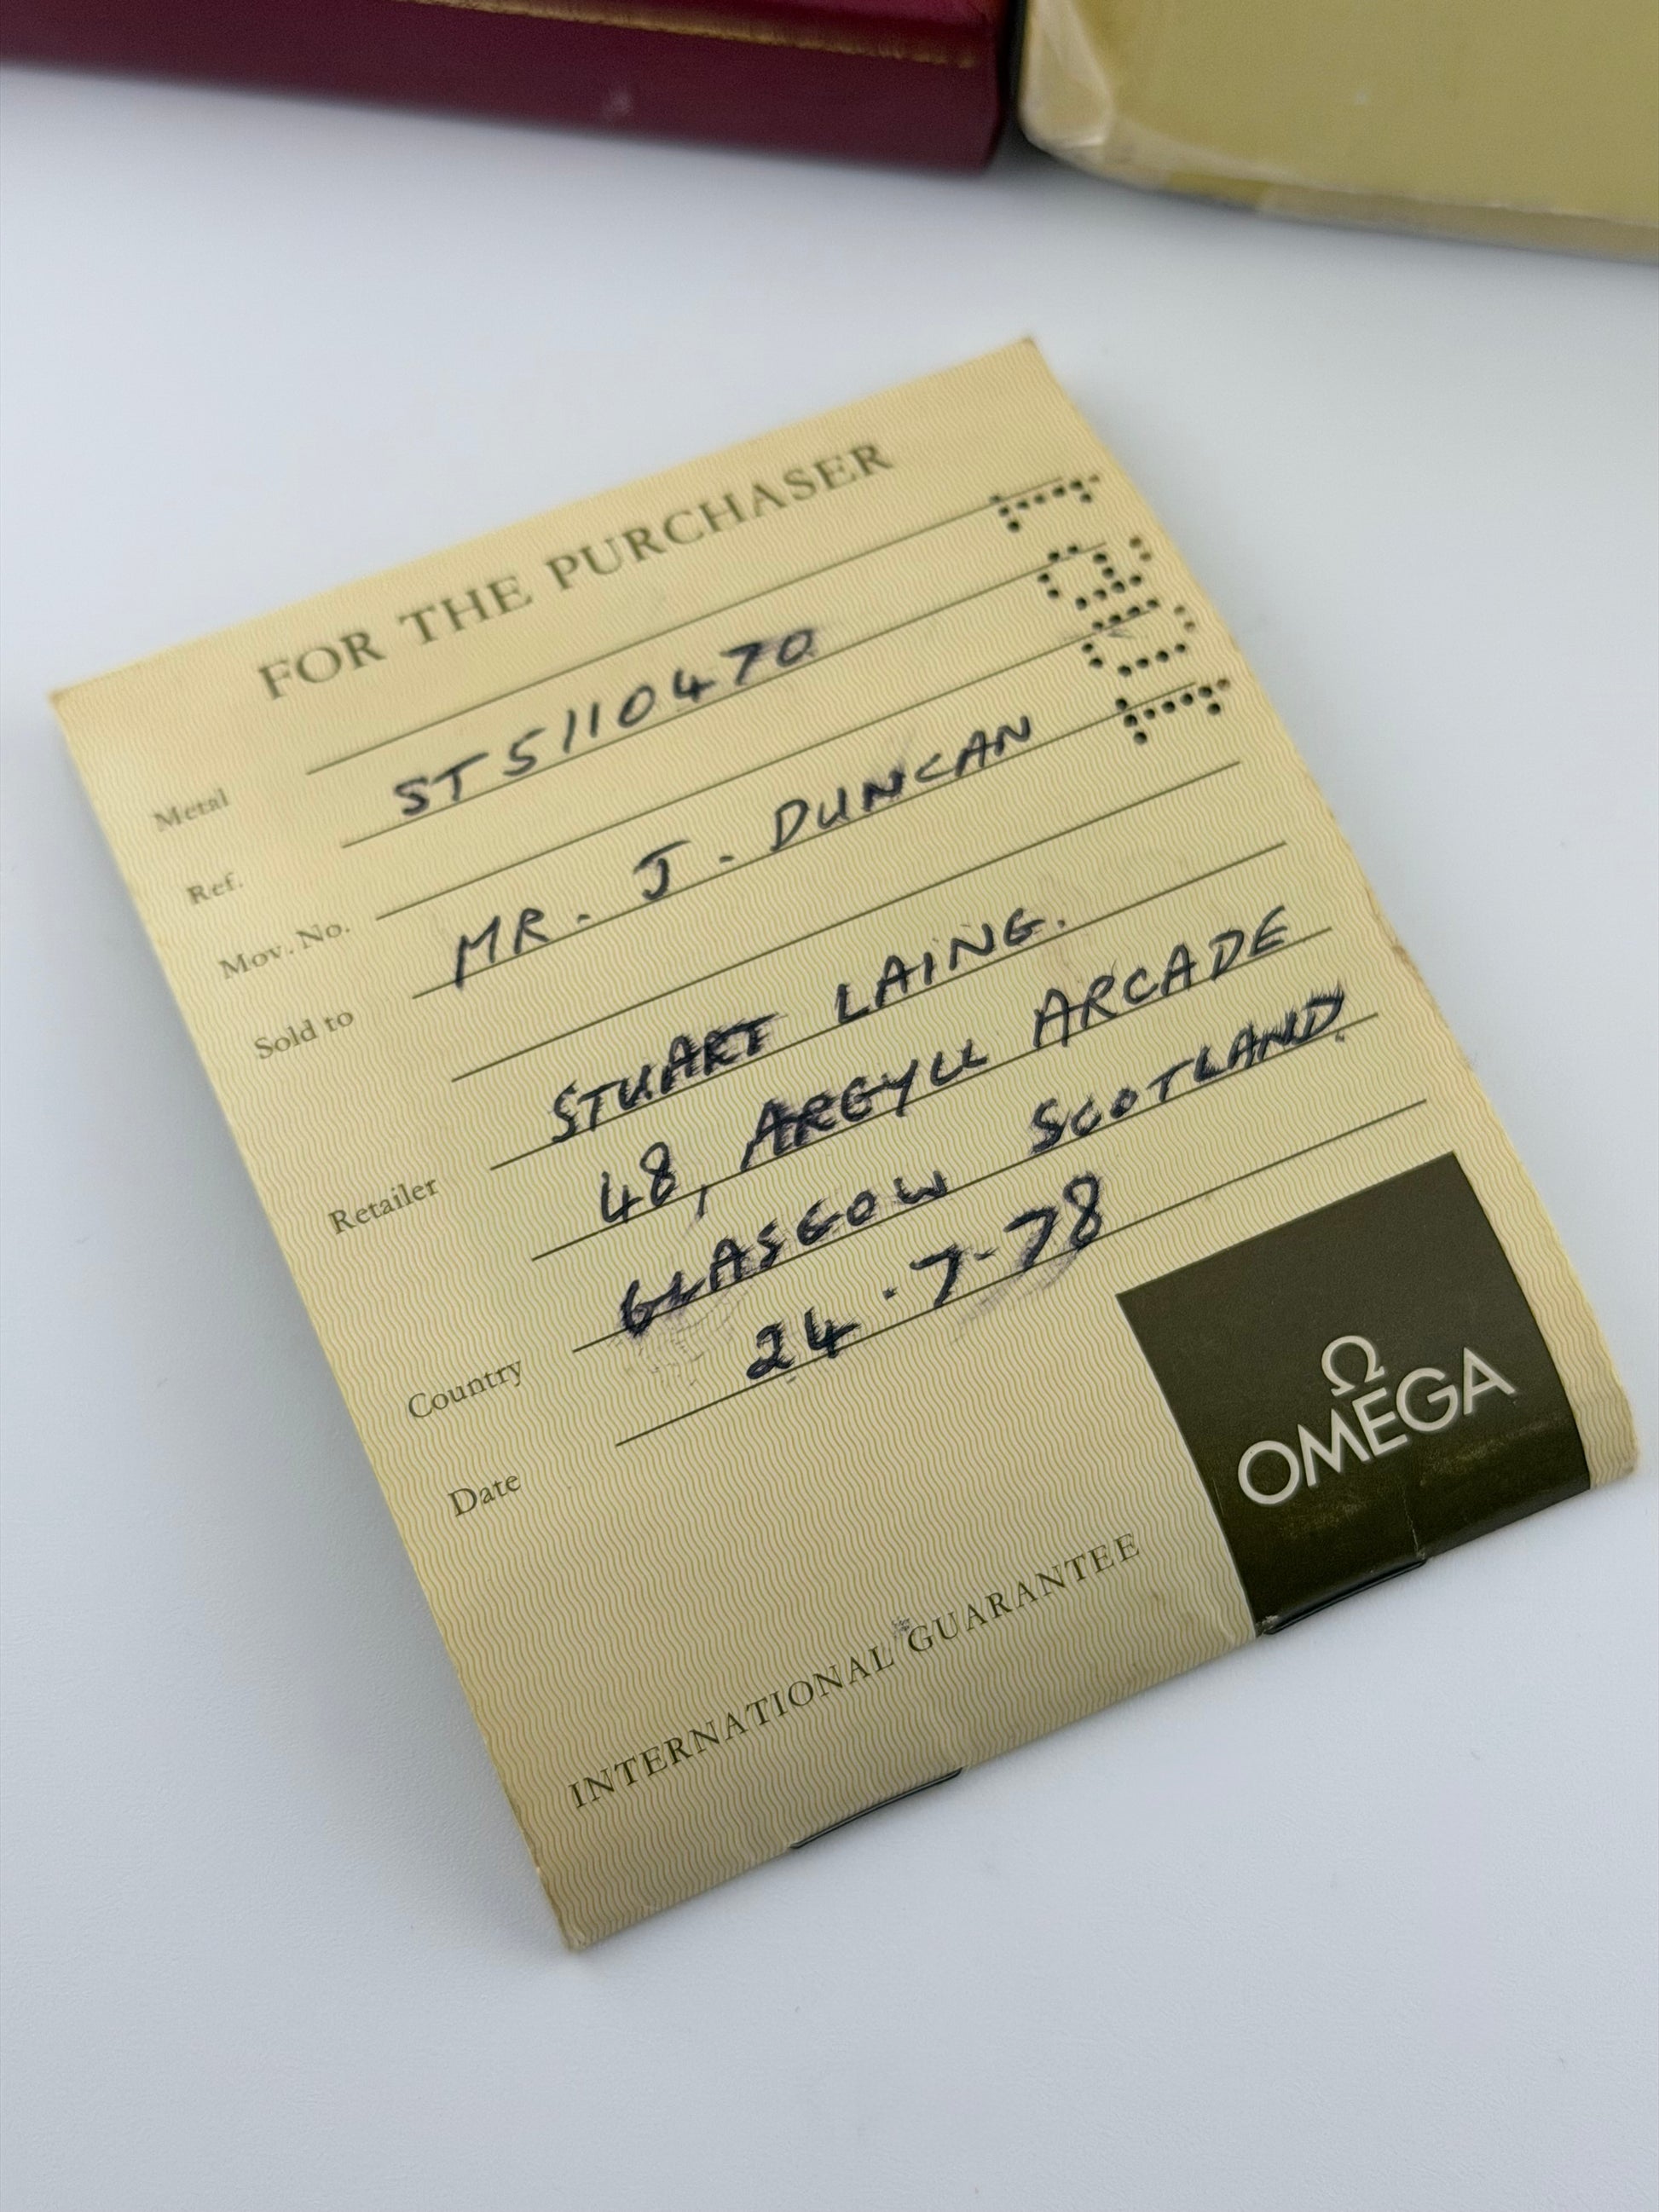 FOR THE PURCHASER
Metal
Ref. ST 5110470
Mov. No.
Sold to MR. J. DUNCAN
Retailer STUART LAING.
48, ARGYLL ARCADE
Country GLASGOW SCOTLAND.
Date 24.7.78
Ω
OMEGA
INTERNATIONAL GUARANTEE